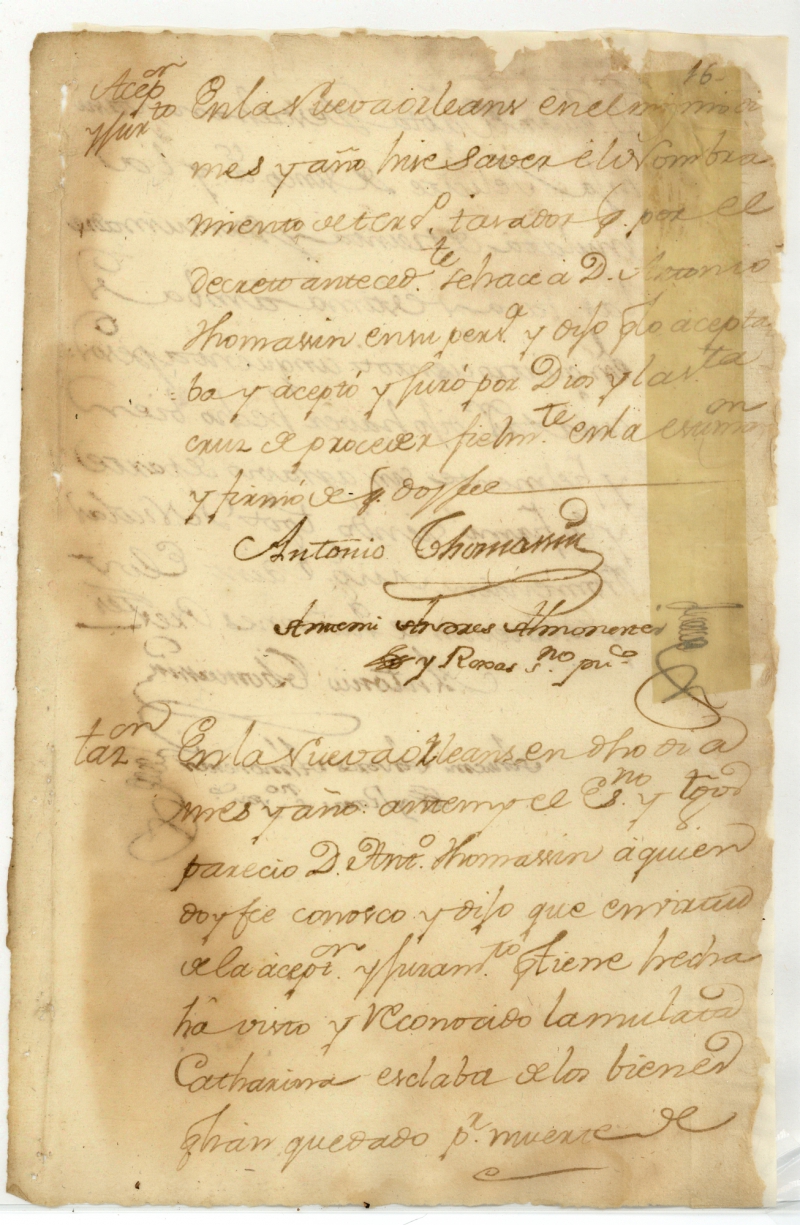 16
Acep.on
y Jur.to
En la Nueva orleans en el mismo di
mes y año hise Saver el Nombra
miento de terd.o tasador q. por el
decreto anteced.te se hace a D. Antonio
Thomassin en su pers.a y dijo q lo acepta
ba y aceptó y Juró por Dios y la s.ta
cruz de proceder fielm.te en la esttim.on
y firmó de q. doy fee
Antonio Thomassin
Antemi Andres Almonester
y Roxas s.no pu.co
taz.on
En la Nueva orleans en dho dia
mes y año antemy el Es.no y tgos
parecio D. Ant.o Thomassin a quien
doy fee conosco y dijo que en virtud
de la acept.on y Juram.to q tiene hecha
ha visto y Reconocido la mulata
Catharina esclaba de los bienes
q han quedado p.r muerte de